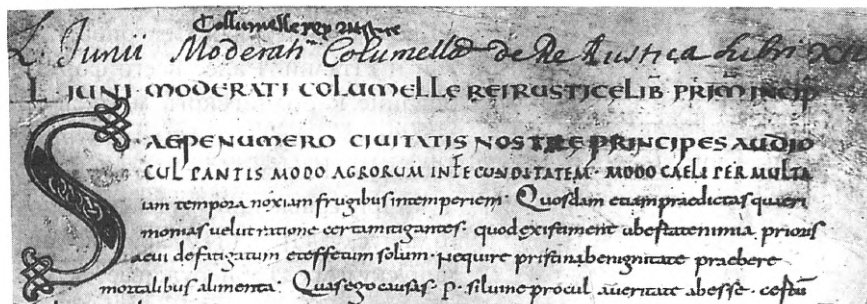 Collumelle rey rustice
L Junii Moderati Columellae de Re Rustica Libri XII
L IUNI MODERATI COLUMELLE REI RUSTICE LIB PRIM INCIP
SAEPENUMERO CIUITATIS NOSTRE PRINCIPES AUDIO
CULPANTIS MODO AGRORUM INFECUNDITATEM · MODO CAELI PER MULTA
iam tempora noxiam frugibus intemperiem · Quosdam etiam praedictas quaeri
monias velut ratione certa mitigantes · quod existiment ubestate nimia prioris
aevi defatigatum et effetum solum · Nequire pristina benignitate praebere
mortalibus alimenta · Quas ego causas · P · siluine procul a ueritate abesse · certū